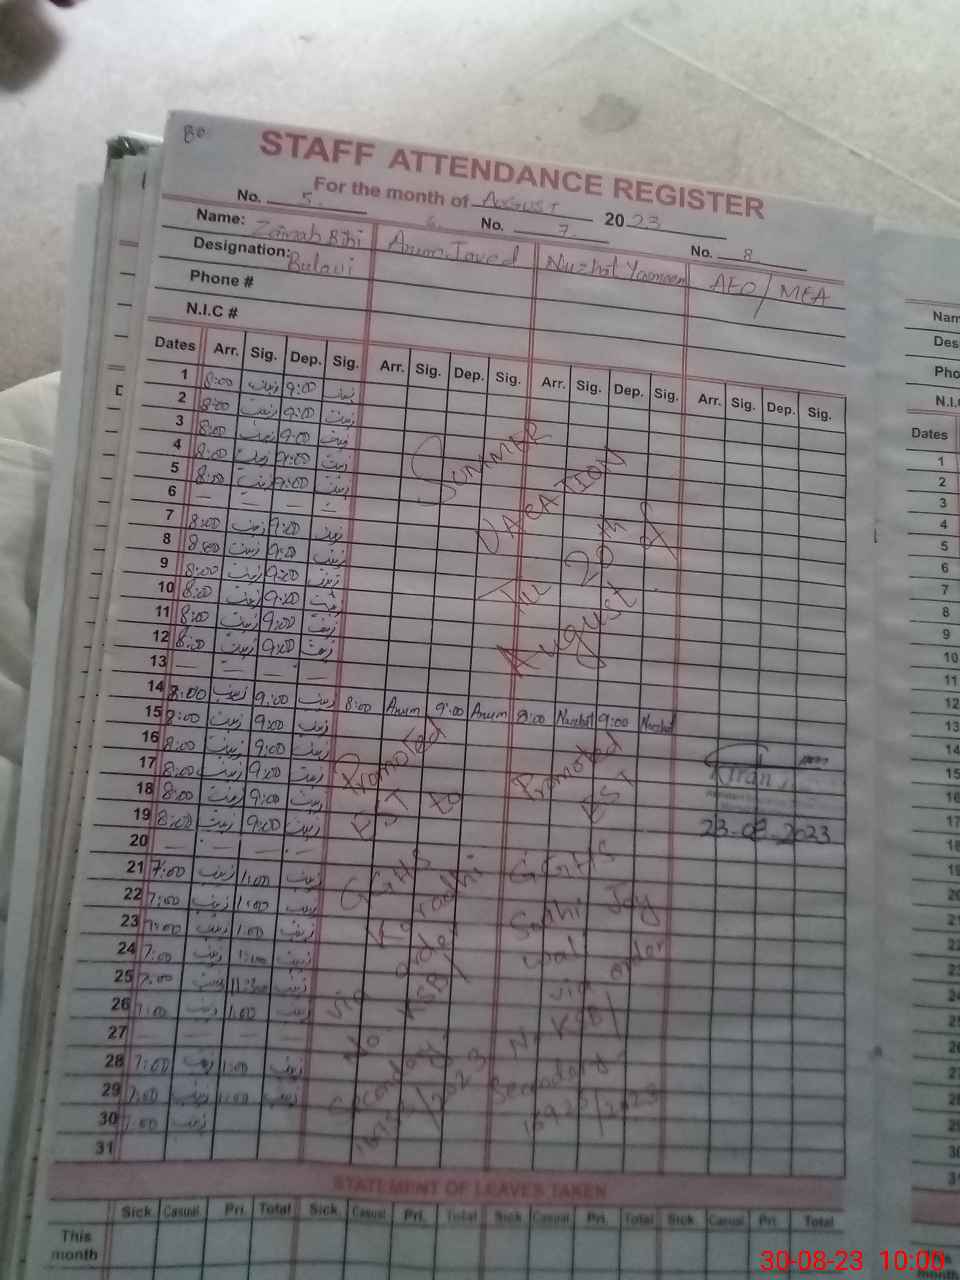 80
STAFF ATTENDANCE REGISTER
For the month of August 2023
No. 5 6 No. 7 No. 8
Name: Zainab Bibi Anum Javed Nuzhat Yasmeen AEO/MEA
Designation:
Phone #
N.I.C #
Dates Arr. Sig. Dep. Sig. Arr. Sig. Dep. Sig. Arr. Sig. Dep. Sig. Arr. Sig. Dep. Sig.
1 8:00 زینب 9:00 زینب
2 8:00 زینب 9:00 زینب
3 8:00 زینب 9:00 زینب
4 8:00 زینب 9:00 زینب
5 8:00 زینب 9:00 زینب
6 — — — —
7 8:00 زینب 9:00 زینب
8 8:00 زینب 9:00 زینب
9 8:00 زینب 9:00 زینب
10 8:00 زینب 9:00 زینب
11 8:00 زینب 9:00 زینب
12 8:00 زینب 9:00 زینب
13 — — — —
SUMMER
VACATION
Till 20th of
August
14 8:00 زینب 9:00 زینب 8:00 Anum 9:00 Anum 8:00 Nuzhat 9:00 Nuzhat
15 8:00 زینب 9:00 زینب
16 8:00 زینب 9:00 زینب
17 8:00 زینب 9:00 زینب
18 8:00 زینب 9:00 زینب
19 8:00 زینب 9:00 زینب
20 — — — —
21 7:00 زینب 1:00 زینب
22 7:00 زینب 1:00 زینب
23 7:00 زینب 1:00 زینب
24 7:00 زینب 1:00 زینب
25 7:00 زینب 11:30 زینب
26 7:00 زینب 1:00 زینب
27 — — — —
28 7:00 زینب 1:00 زینب
29 7:00 زینب 1:00 زینب
30 7:00 زینب
31
Promoted
EST to
GGHS
via order
No. KSB/
Secondary
/2023
Promoted
EST
GGHS
Joy
wal
via order
No KSB/
Secondary
/2023
Kiran
23-08-2023
STATEMENT OF LEAVES TAKEN
Sick. Casual. Pri. Total Sick. Casual. Pri. Total Sick. Casual. Pri. Total Sick. Casual. Pri. Total
This
month
Nam
Des
Pho
N.I.C
Dates
1
2
3
4
5
6
7
8
9
10
11
12
13
14
15
16
17
18
19
20
21
22
23
24
25
26
27
28
29
30
30-08-23 10:00